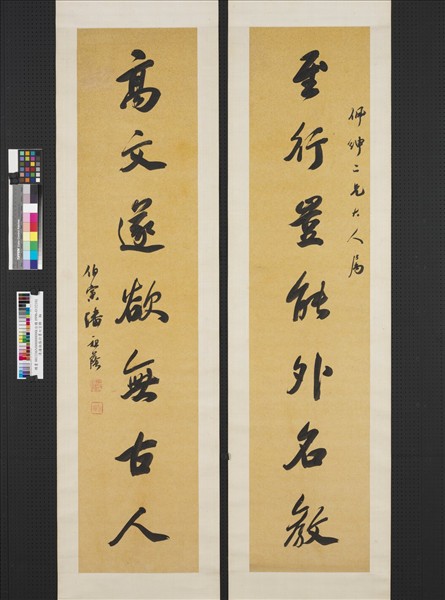 佩紳二兄大人屬
至行豈能外名教
高文遂欲無古人
伯寅潘祖蔭